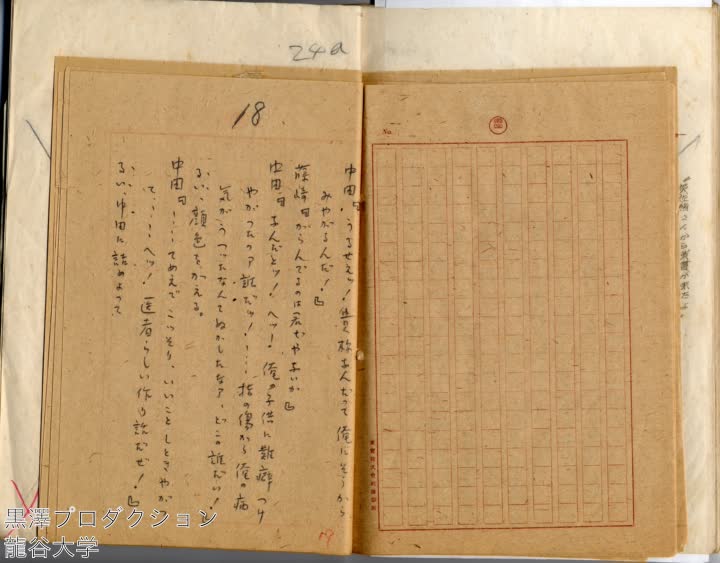 24a
18
中田「うるせえッ!貴様なんだって俺にそうから
みやがるんだ!」
藤崎「からんでるのは君ぢゃないか」
中田「なんだとッ!ヘッ!俺の子供に難癖つけ
やがったのァ誰だッ!……指の傷から俺の病
気がうつったなんてぬかしたなァ、どこの誰だい!」
るい、顔色をかえる。
中田「……てめえでこっそり、いいことしときやが
て……ヘッ!医者らしい作り話だぜ!」
るい、中田に詰めよって
No.
黒澤プロダクション
龍谷大学